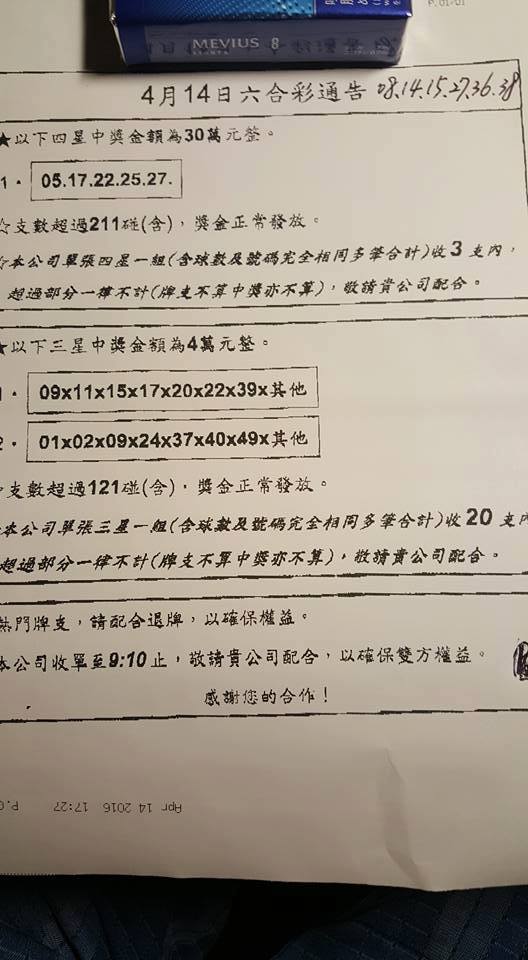 P.01/01
MEVIUS 8
4月14日六合彩通告 08.14.15.27.36.38
★以下四星中獎金額為30萬元整。
1. 05.17.22.25.27.
☆支數超過211碰(含)，獎金正常發放。
☆本公司單張四星一組(含球數及號碼完全相同多筆合計)收3支內，
超過部分一律不計(牌支不算中獎亦不算)，敬請貴公司配合。
★以下三星中獎金額為4萬元整。
1. 09x11x15x17x20x22x39x其他
2. 01x02x09x24x37x40x49x其他
☆支數超過121碰(含)，獎金正常發放。
☆本公司單張三星一組(含球數及號碼完全相同多筆合計)收20支內
超過部分一律不計(牌支不算中獎亦不算)，敬請貴公司配合。
熱門牌支，請配合退牌，以確保權益。
本公司收單至9:10止，敬請貴公司配合，以確保雙方權益。
感謝您的合作！
Apr 14 2016 17:27